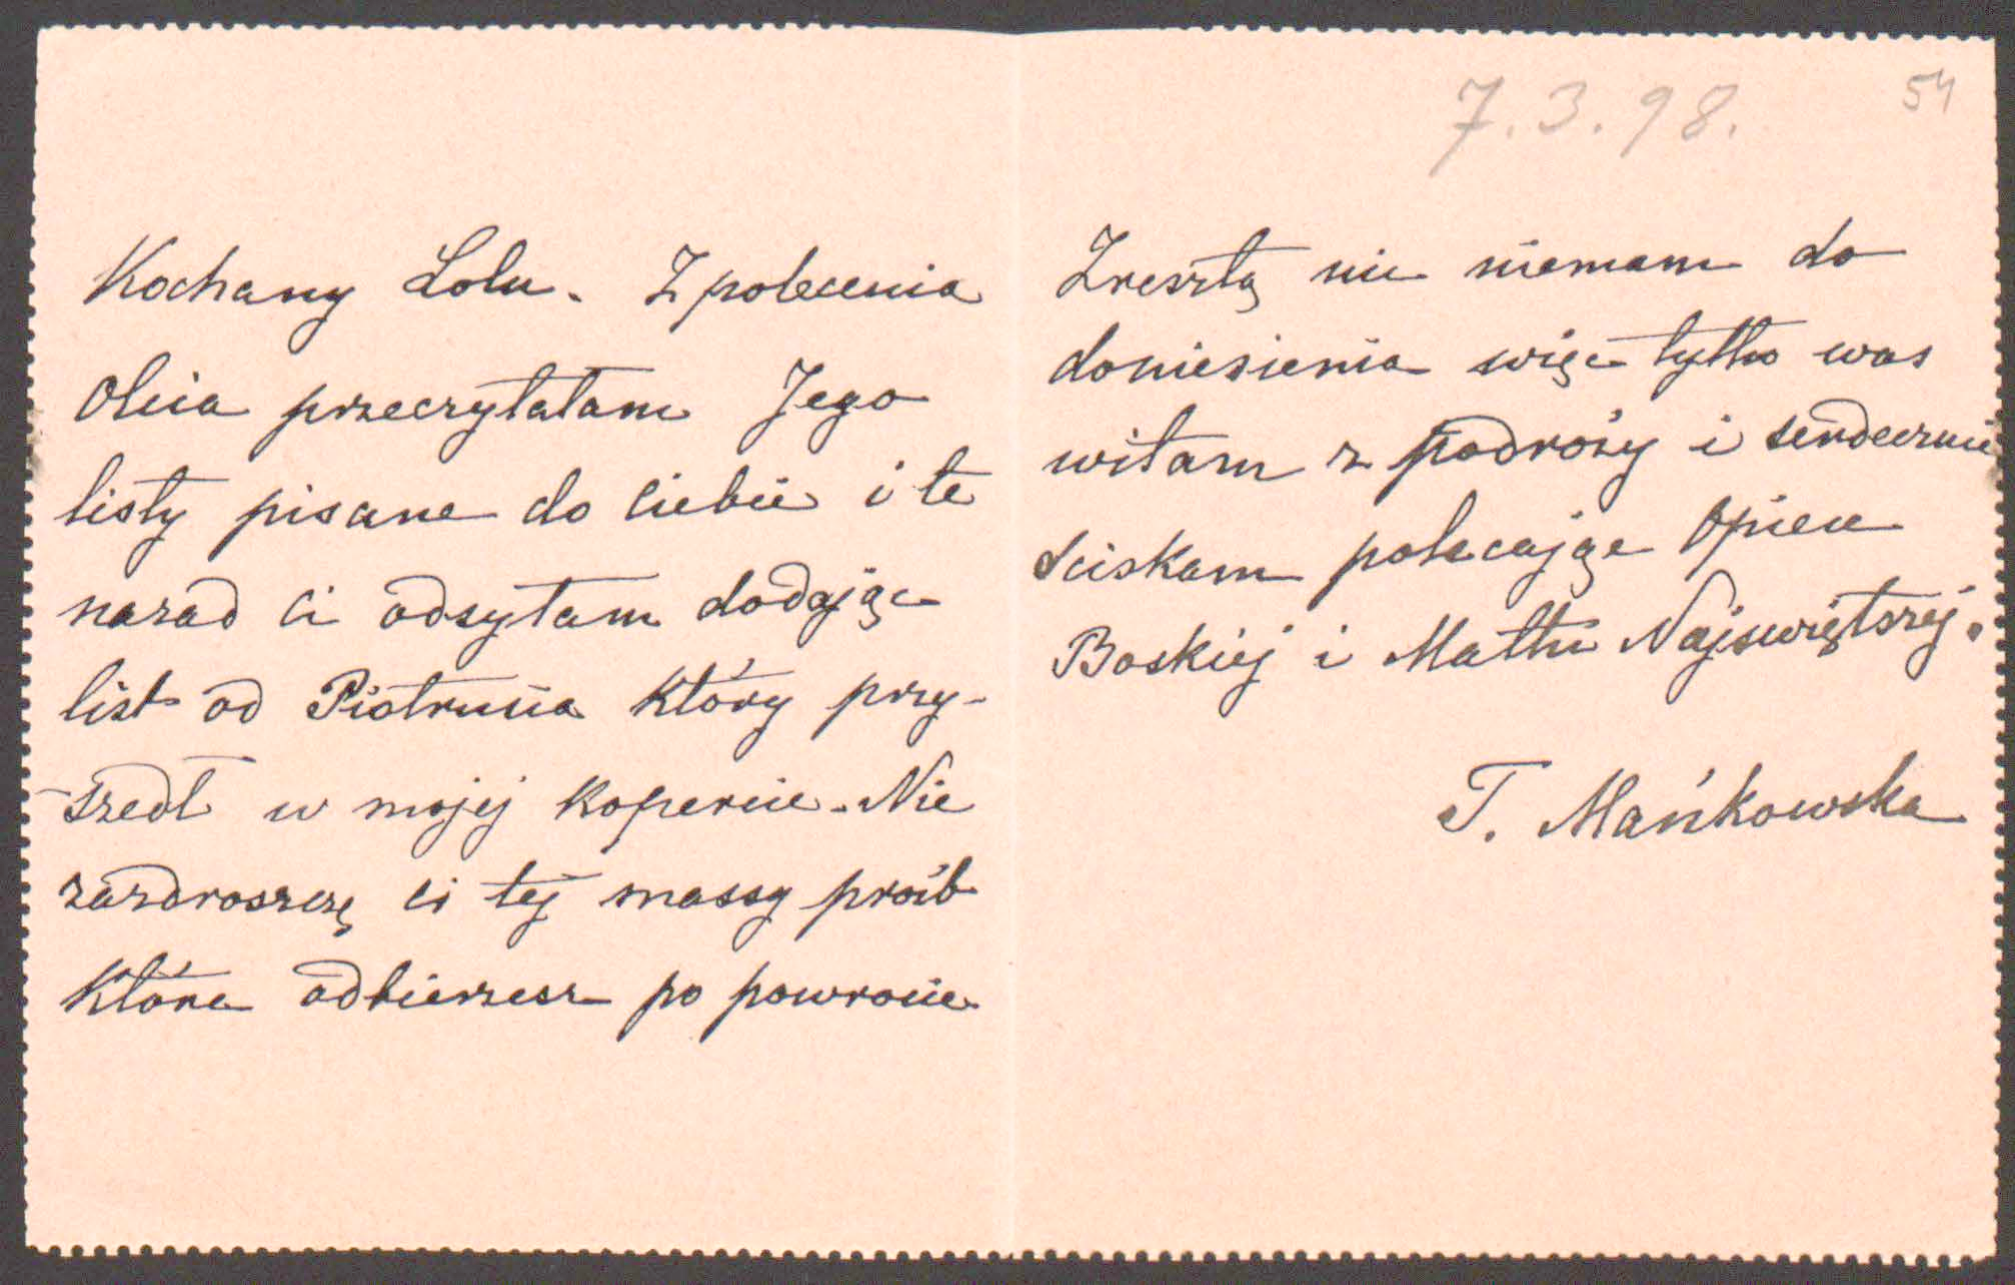 Kochany Lolu. Z polecenia
Olcia przeczytałam Jego
listy pisane do Ciebie i te
nazad Ci odsyłam dodając
list od Piotrusia który przy-
-szedł w mojej kopercie. Nie
zazdroszczę ci tej massy próśb
które odbierzesz po powrocie
7.3.98.
54
Zresztą nic niemam do
doniesienia więc tylko was
witam z podróży i serdecznie
sciskam polecając Opiece
Boskiej i Matki Najswiętszej.
T. Mańkowska